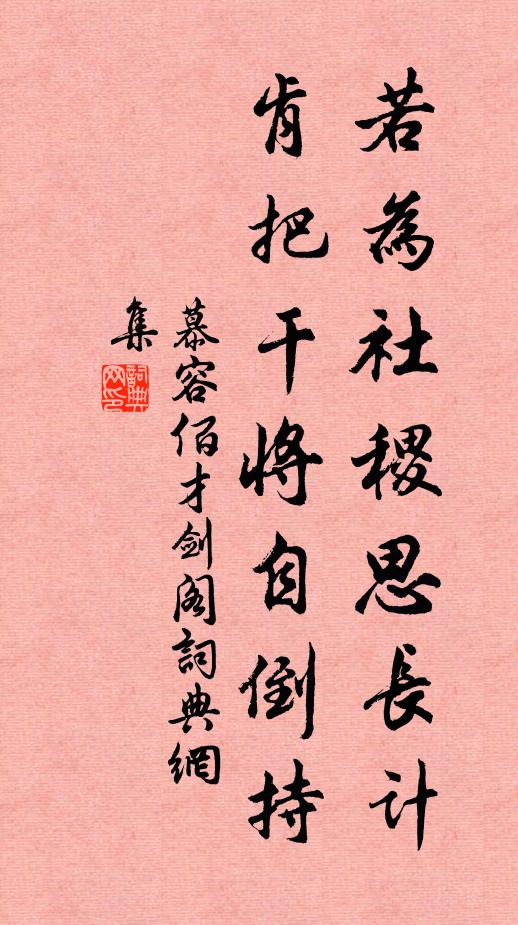 若為社稷思長計
肯把干將自倒持
慕容佰才剑阁詞典網
集
詞典
网印